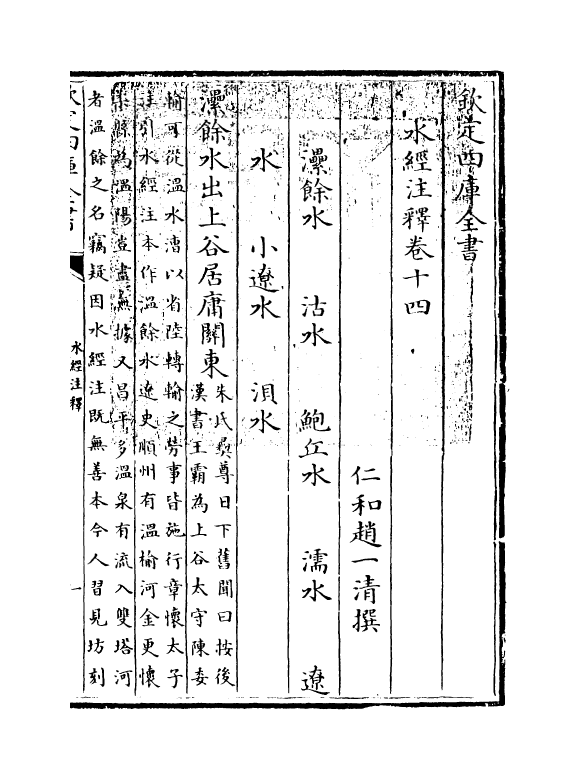 欽定四庫全書
水經注釋卷十四
仁和趙一清撰
㶟餘水 沽水 鮑丘水 濡水 遼
水 小遼水 浿水
㶟餘水出上谷居庸關東
朱氏彞尊日下舊聞曰按後
漢書王霸為上谷太守陳委
輸可從溫水漕以省陸轉輸之勞事皆施行章懷太子
注引水經注本作溫餘水遼史順州有溫榆河金更懷
柔縣為溫陽豈盡無據又昌平多溫泉有流入雙塔河
者溫餘之名竊疑因水經注既無善本今人習見坊刻
欽定四庫全書
水經注釋
一